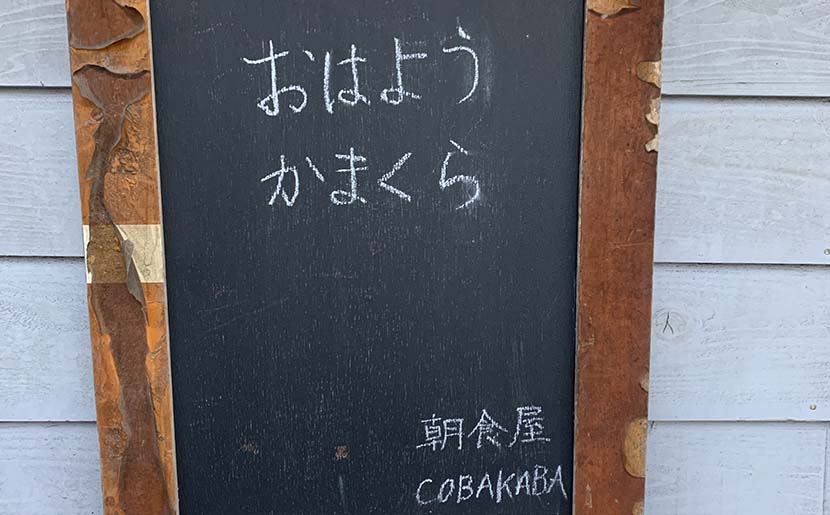 おはよう
かまくら
朝食屋
COBAKABA